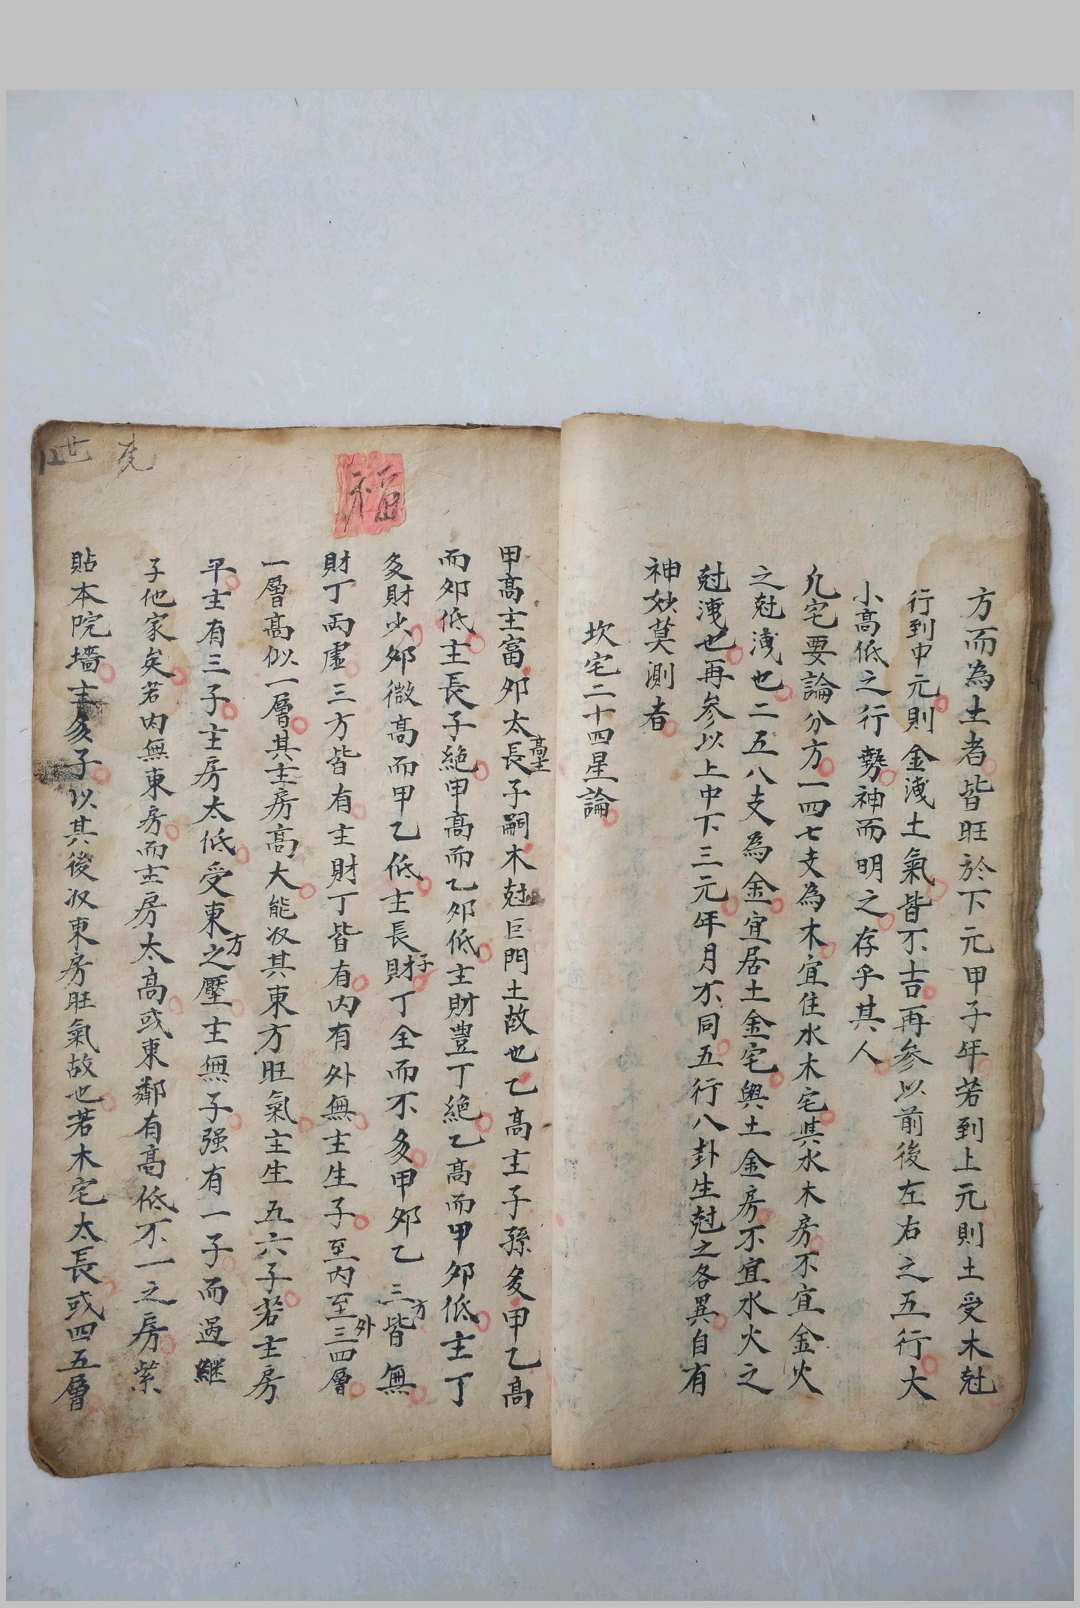 方而為土者皆旺於下元甲子年若到上元則土受木尅
行到中元則金洩土氣皆不吉再參以前後左右之五行大
小高低之行勢神而明之存乎其人
凢宅要論分方一四七支為木宜住水木宅與水木房不宜金火
之尅洩也二五八支為金宜居土金宅與土金房不宜水火之
尅洩也再參以上中下三元年月不同五行八卦生尅之各異自有
神妙莫測者
坎宅二十四星論
甲高主富夘太高主長子嗣木尅巨門土故也乙高主子孫多甲乙高
而夘低主長子絶甲高而乙夘低主財豊丁絶乙高而甲夘低主丁
多財少夘微高而甲乙低主長子財丁全而不多甲夘乙三方皆無
財丁兩虛三方皆有主財丁皆有内有外無主生子至内至外三四層
一層高似一層其主房高大能收其東方旺氣主生五六子若主房
平主有三子主房太低受東方之壓主無子强有一子而過継
子他家矣若内無東房而主房太高或東鄰有高低不一之房紫
貼本院墻主多子以其後收東房旺氣故也若木宅太長或四五層
福